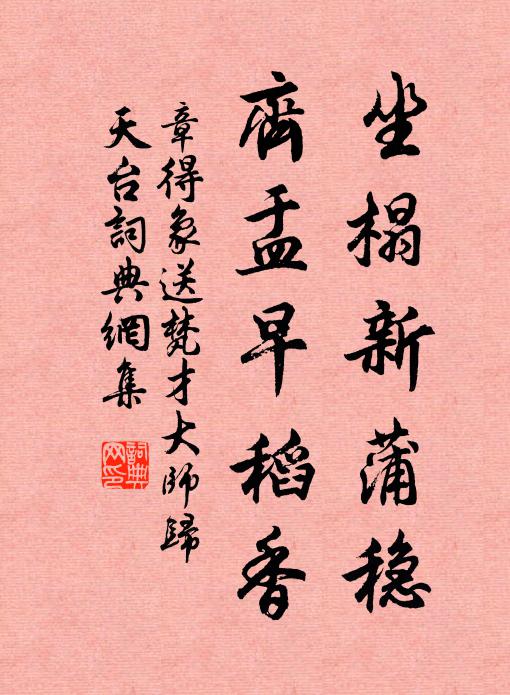 坐榻新蒲稳
齊盂早稻香
章得象送梵才大师歸
天台詞典網集
詞典网印